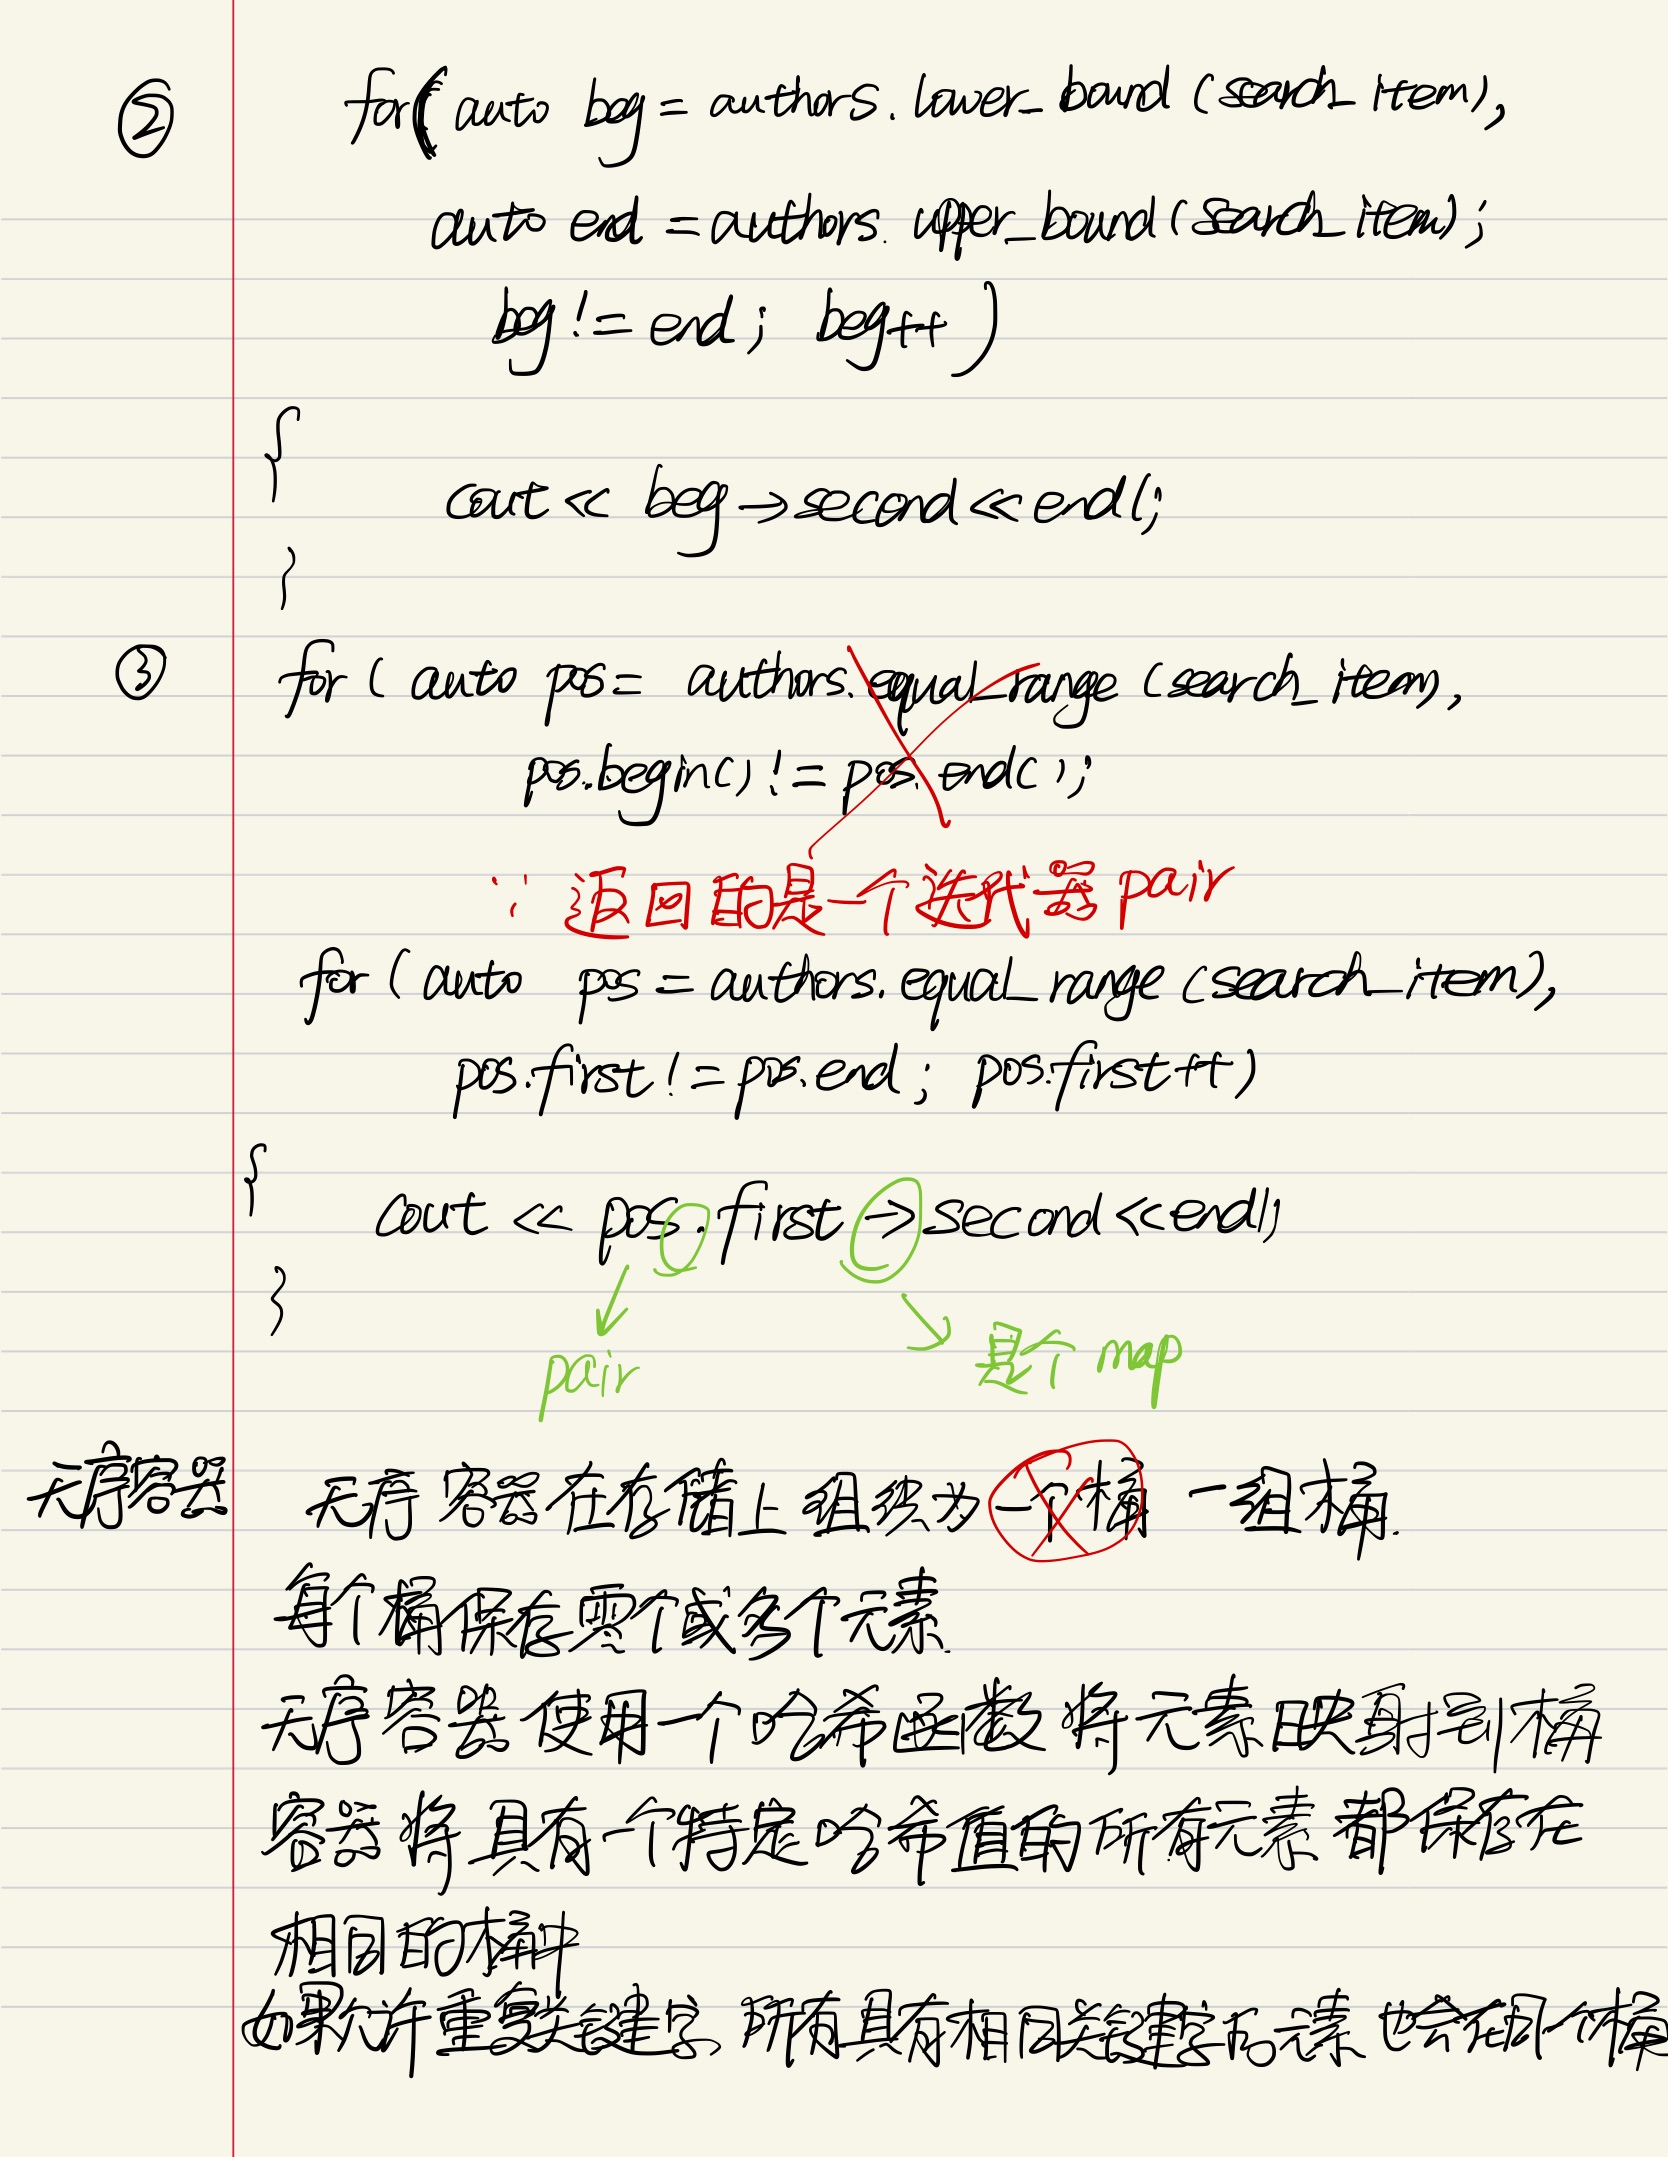 ② for( auto beg = authors.lower_bound (search_item),
auto end = authors.upper_bound(search_item);
beg != end; beg++ )
{
cout << beg->second << endl;
}
③ for ( auto pos = authors.equal_range (search_item),
pos.begin() != pos.end();
∵ 返回的是一个迭代器 pair
for ( auto pos = authors.equal_range (search_item),
pos.first != pos.end; pos.first++ )
{
cout << pos.first ->second << endl;
}
pair 是个 map
无序容器 无序容器在存储上组织为一个桶 一组桶.
每个桶保存零个或多个元素.
无序容器使用一个哈希函数将元素映射到桶
容器将具有一个特定哈希值的所有元素都保存在
相同的桶中
如果允许重复关键字 所有具有相同关键字的元素也会在同一个桶